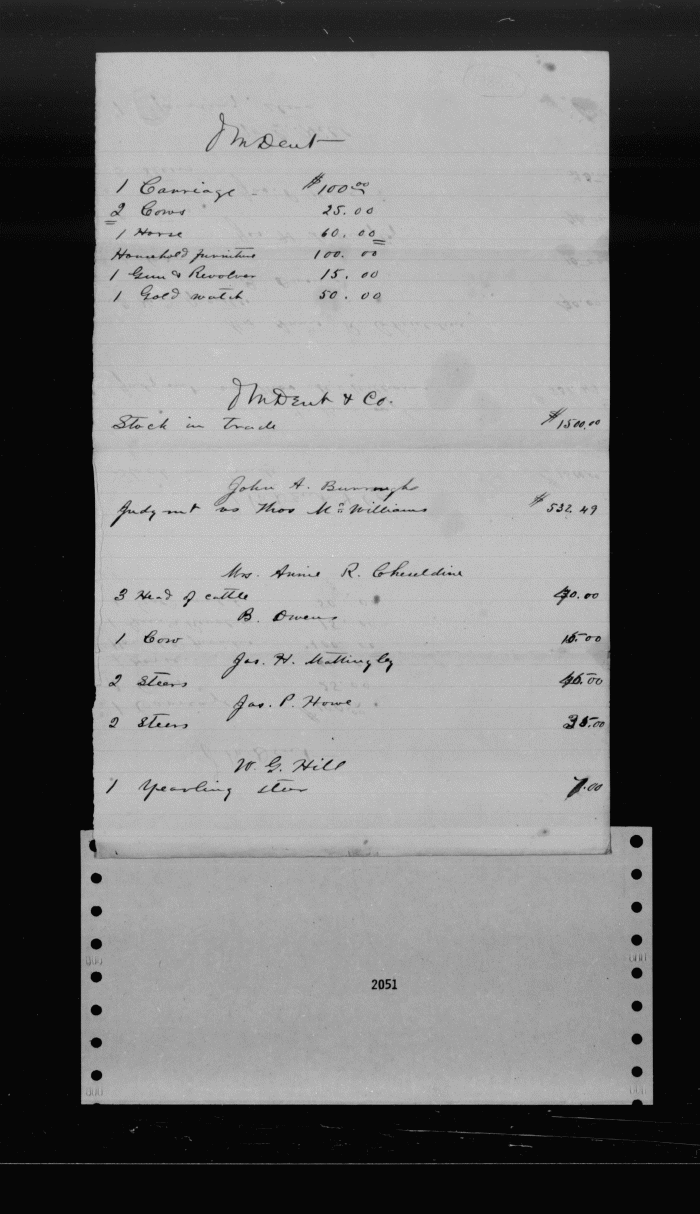 J M Dent
1 Carriage $100.00
2 Cows 25.00
1 Horse 60.00
Household furniture 100.00
1 Gun & Revolver 15.00
1 Gold watch 50.00
J M Dent & Co.
Stock in trade $1500.00
John A. Burroughs
Judgmt vs Thos Mc Williams $532.49
Mrs. Annie R. Cheseldine
3 Head of cattle .00
B. Owens
1 Cow 15.00
Jas. H. Mattingley
2 Steers
Jas. P. Howe
2 Steers 35.00
W. G. Hill
1 Yearling steer 7.00
2051